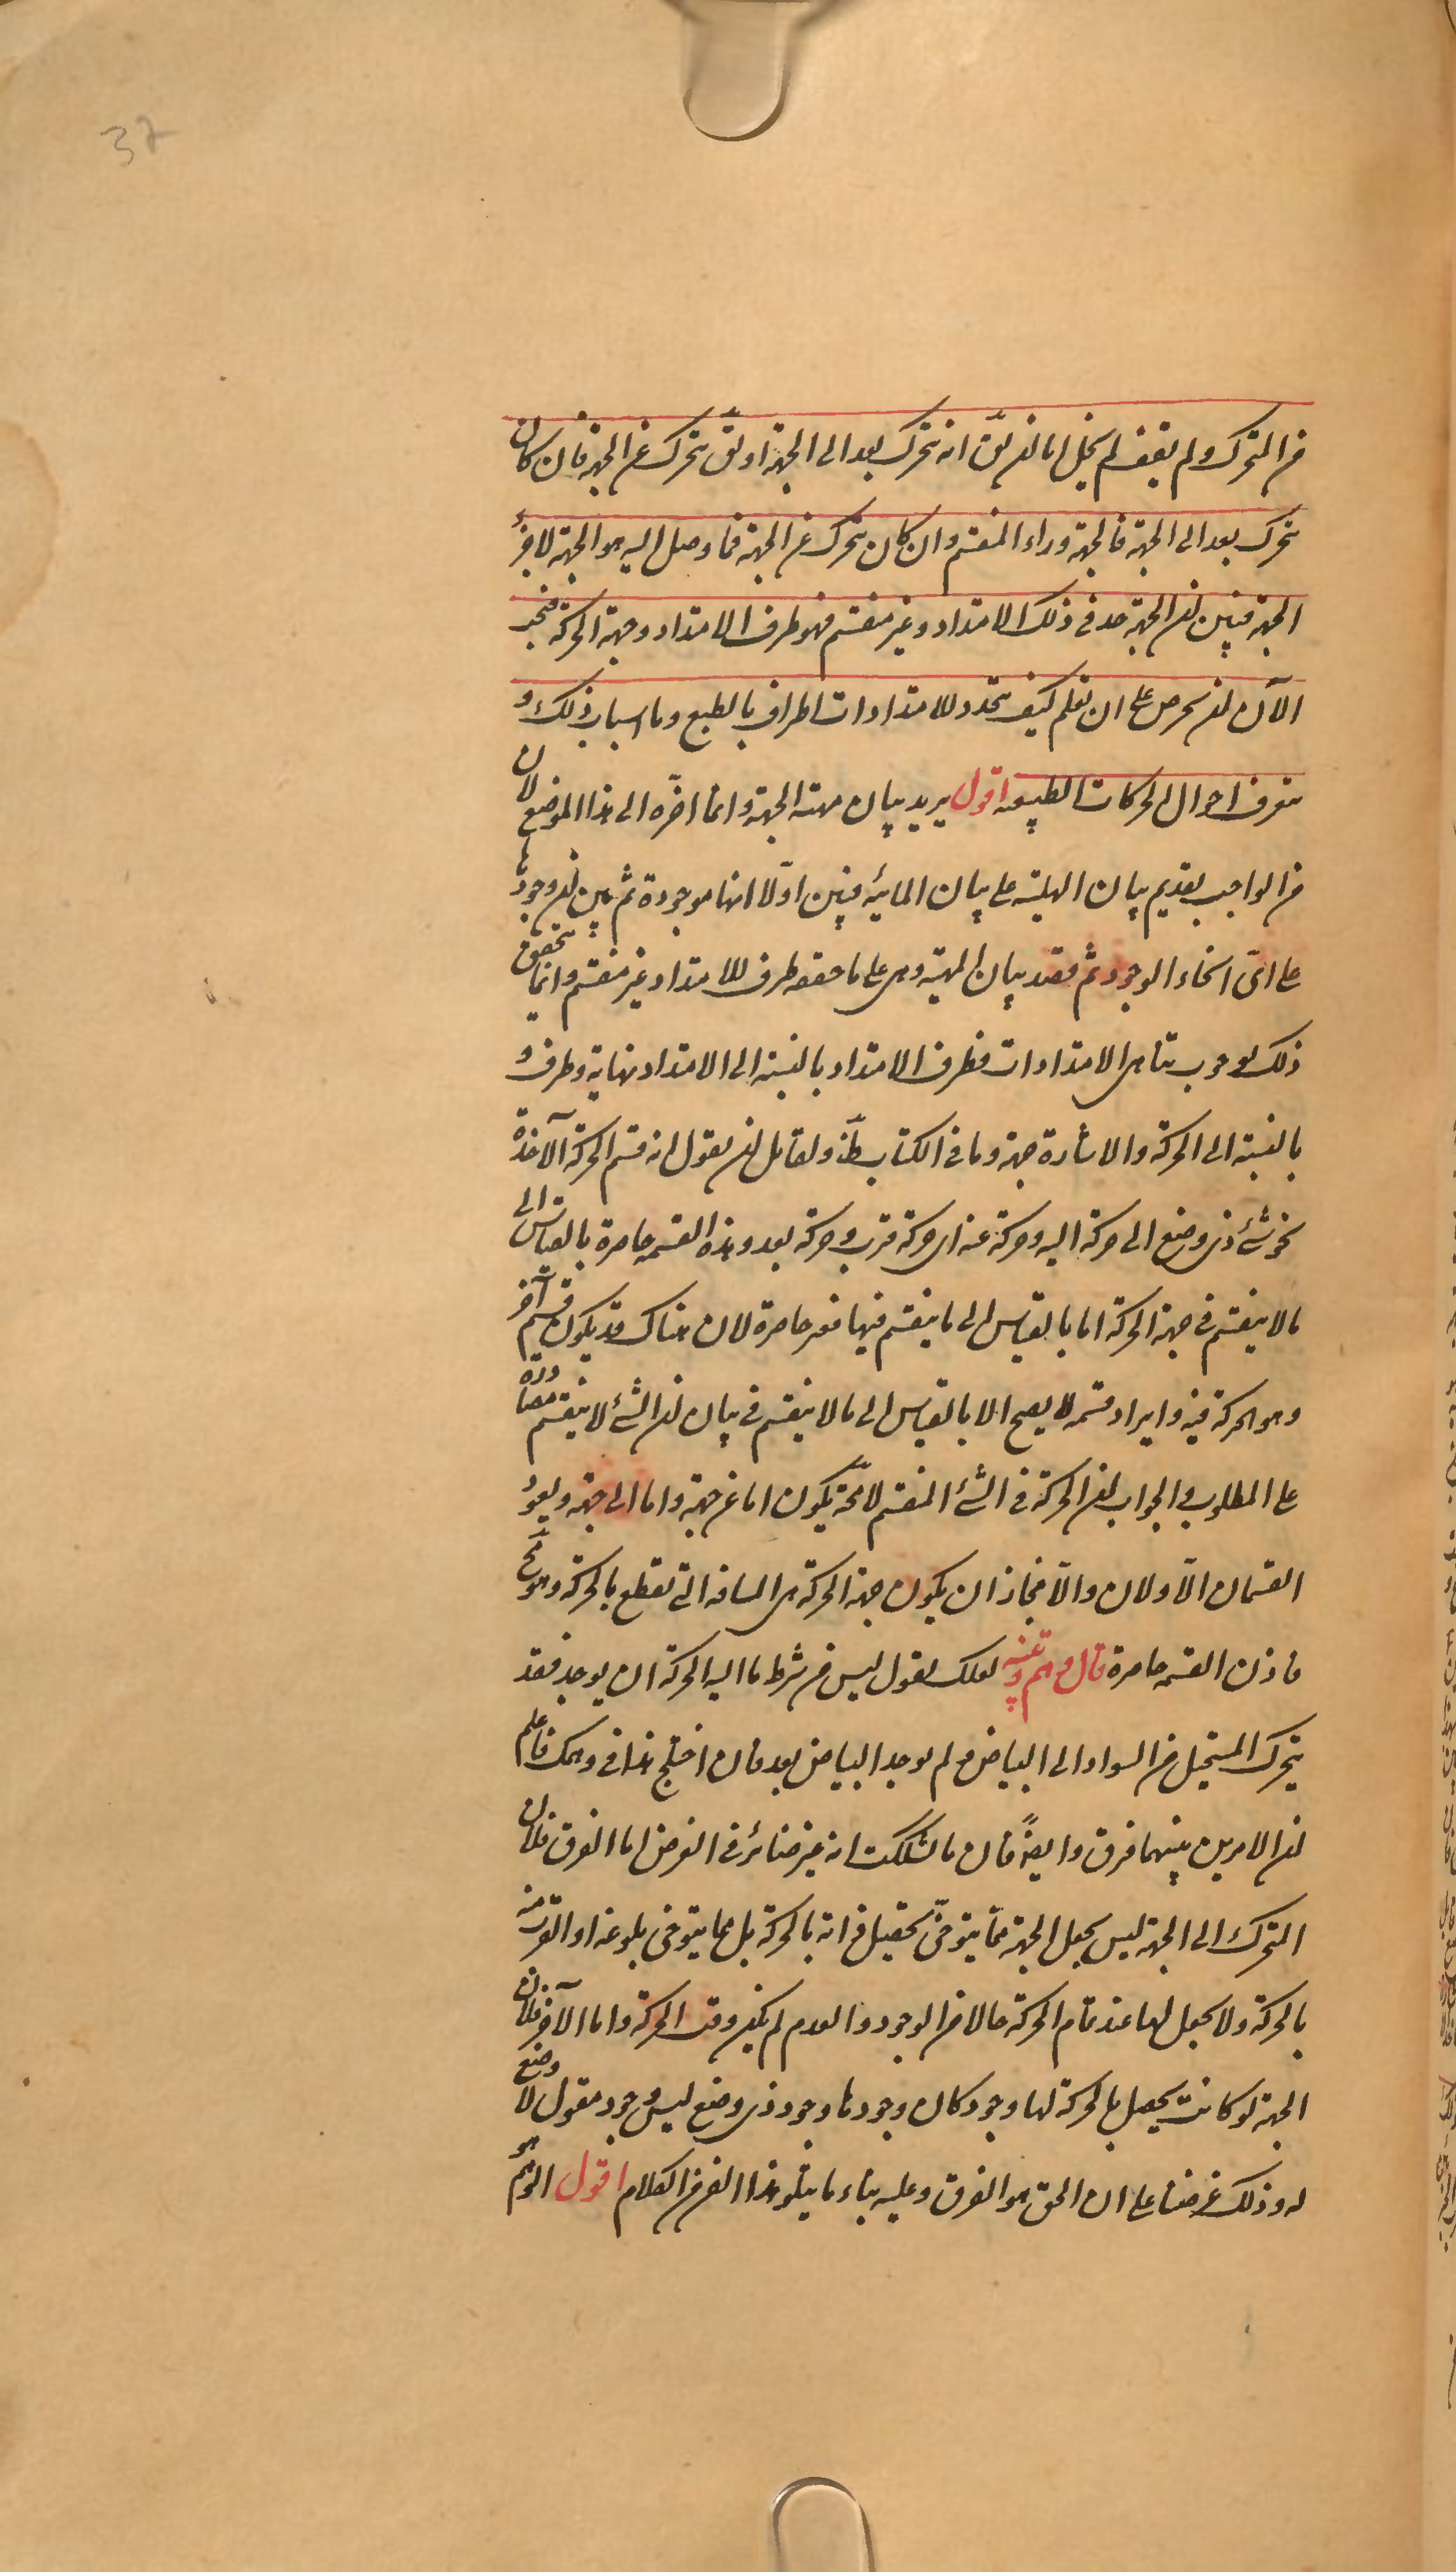 37
من المتحرك ولم يقف لم يخل اما ان يق انه يتحرك بعد الى الجهة او يق يتحرك عن الجهة فان كان
يتحرك بعد الى الجهة فالجهة وراء المنقسم وان كان يتحرك عن الجهة فما وصل اليه هو الجهة لا جزء
الجهة فتبين ان الجهة حد في ذلك الامتداد وغير منقسم فهو طرف الامتداد وجهة الحركة فيجب
الآن ان نحرص على ان نعلم كيف يتحدد للامتدادات اطراف بالطبع وما اسباب ذلك و
نتعرف احوال الحركات الطبيعية اقول يريد بيان مهية الجهة وانما اخره الى هذا الموضع لان
من الواجب تقديم بيان الهلية على بيان المائية فبين اولا انها موجودة ثم بين ان وجودها
على اى انحاء الوجود ثم قصد بيان المهية وهى على ما حققه طرف للامتداد غير منقسم وانما يتحقق
ذلك لوجوب تناهى الامتدادات فطرف الامتداد بالنسبة الى الامتداد نهاية وطرف و
بالنسبة الى الحركة والاشارة جهة وما فى الكتاب ظ ولقائل ان يقول انه قسم الحركة الآخذة
نحو شئ ذى وضع الى حركة اليه وحركة عنه اى حركة قرب وحركة بعد وهذه القسمة حاصرة بالقياس الى
ما لا ينقسم فى جهة الحركة اما بالقياس الى ما ينقسم فيها فغير حاصرة لان هناك قد يكون قسم آخر
وهو الحركة فيه وايراد قسمة لا يصح الا بالقياس الى ما لا ينقسم فى بيان ان الشئ لا ينقسم مصادرة
على المطلوب والجواب ان الحركة فى الشئ المنقسم لا محة يكون اما عن جهة واما الى جهة ويعود
القسمان الاولان والا فجاز ان يكون جهة الحركة هى المسافة التى تقطع بالحركة وهو مح
فاذن القسمة حاصرة قال وهم وتنبيه لعلك تقول ليس من شرط ما اليه الحركة ان يوجد فقد
يتحرك المستحيل من السواد الى البياض ولم يوجد البياض بعد فان اختلج هذا فى وهمك فاعلم
ان الامرين بينهما فرق وايضا فان ما تشككت به غير ضائر فى الغرض اما الفرق فلان
المتحرك الى الجهة ليس يجعل الجهة مما يتوخى تحصيل ذاته بالحركة بل مما يتوخى بلوغه او القرب منه
بالحركة ولا يجعل لها عند تمام الحركة حالا من الوجود والعدم لم يكن وقت الحركة واما الآخر فلان
الجهة لو كانت يحصل بالحركة لها وجود كان وجودها وجود ذى وضع ليس وجود معقول لا وضع
له وذلك غرضنا على ان الحق هو الفرق وعليه بناء ما يتلو هذا الفن من الكلام اقول الوهم هو